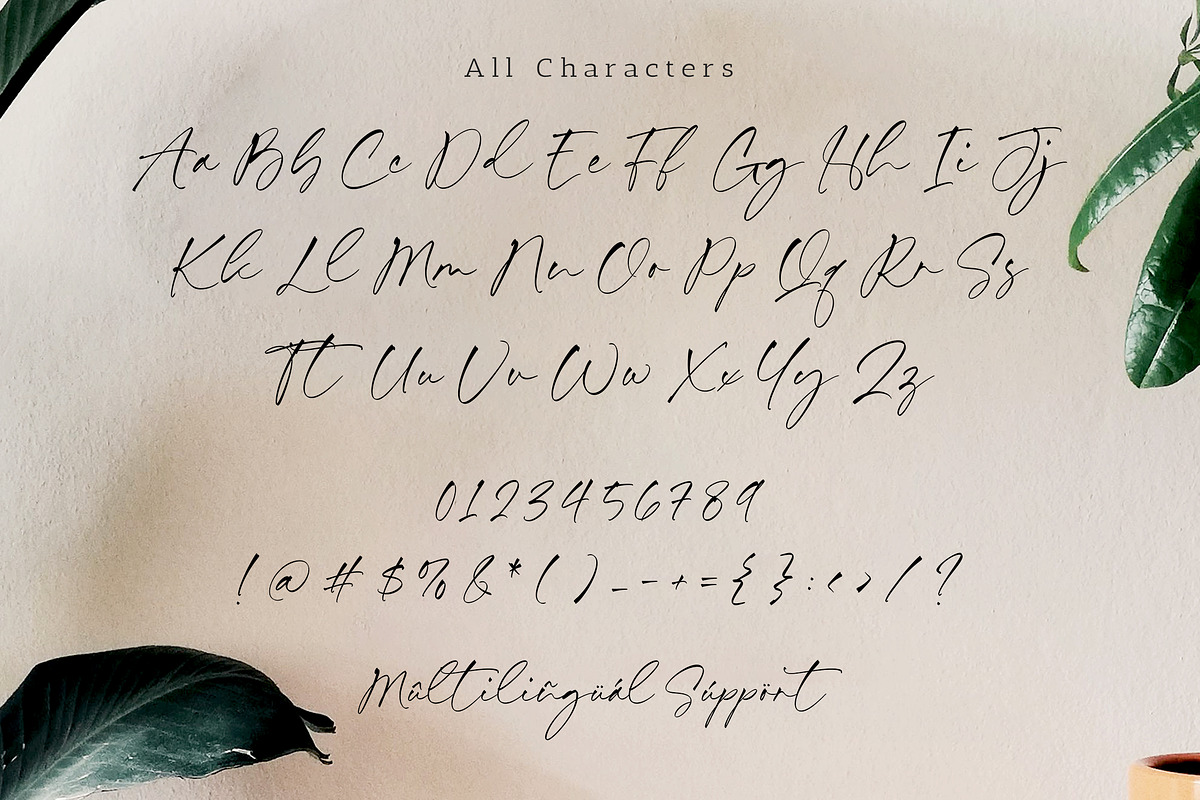 All Characters
Aa Bb Cc Dd Ee Ff Gg Hh Ii Jj
Kk Ll Mm Nn Oo Pp Qq Rr Ss
Tt Uu Vv Ww Xx Yy Zz
0123456789
! @ # $ % & * ( ) _ - + = { } : < > / ?
Mûltiliñgüál Súppört